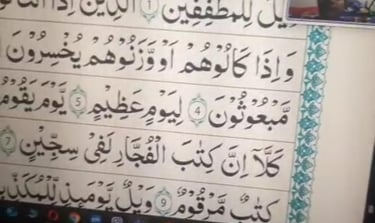 لِّلْمُطَفِّفِيْنَ ۱ الَّذِيْنَ اِذَا
وَاِذَا كَالُوْهُمْ اَوْ وَّزَنُوْهُمْ يُخْسِرُوْنَ
مَّبْعُوْثُوْنَ 4 لِيَوْمٍ عَظِيْمٍ 5 يَّوْمَ يَقُوْمُ
كَلَّآ اِنَّ كِتٰبَ الْفُجَّارِ لَفِيْ سِجِّيْنٍ 7
كِتٰبٌ مَّرْقُوْمٌ 9 وَيْلٌ يَّوْمَئِذٍ